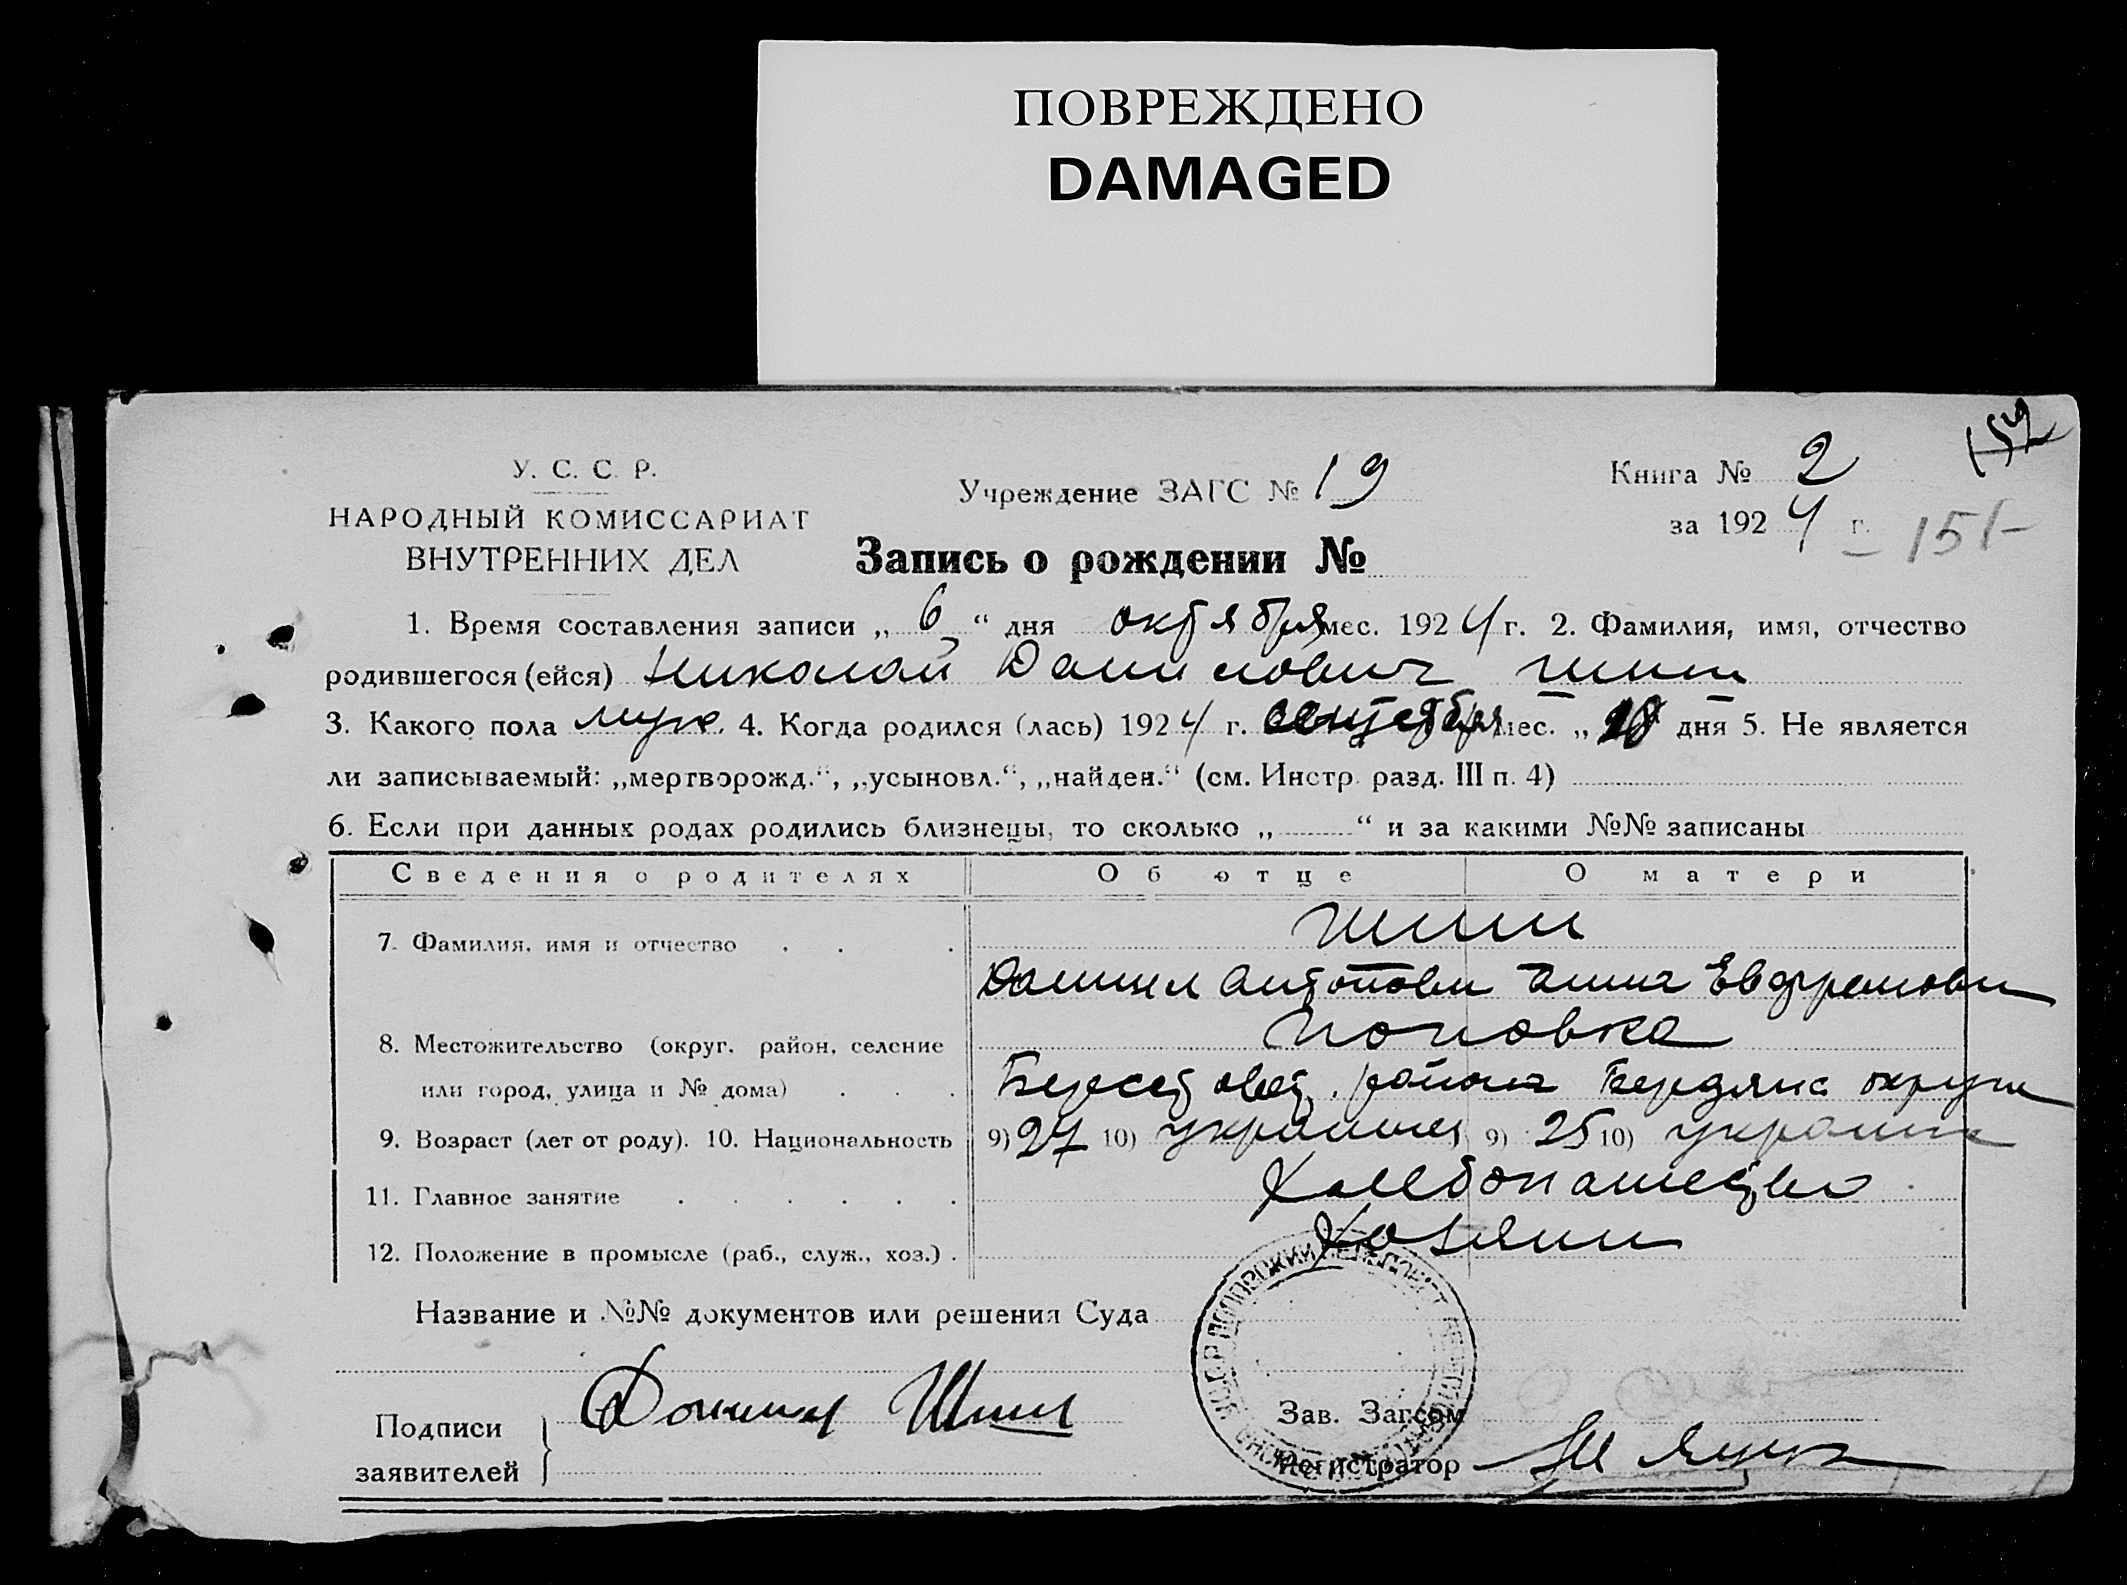 ПОВРЕЖДЕНО
DAMAGED
152
У. С. С. Р.
Учреждение ЗАГС № 19
Книга № 2
НАРОДНЫЙ КОМИССАРИАТ
за 1924 г. - 151-
ВНУТРЕННИХ ДЕЛ
Запись о рождении №
1. Время составления записи „ 6 “ дня октября мес. 1924 г. 2. Фамилия, имя, отчество
родившегося (ейся) Николай Данилович
3. Какого пола муж. 4. Когда родился (лась) 1924 г. сентября мес. „ “ дня 5. Не является
ли записываемый: „мертворожд.“, „усыновл.“, „найден.“ (см. Инстр. разд. III п. 4)
6. Если при данных родах родились близнецы, то сколько „ “ и за какими №№ записаны
Сведения о родителях Об отце О матери
7. Фамилия, имя и отчество
Даниил Антонови Анна Евдфремовн
8. Местожительство (округ, район, селение Поповка
или город, улица и № дома) Берестовец. района Бердянс округи
9. Возраст (лет от роду). 10. Национальность 9) 27 10) украинец 9) 25 10) украинк
11. Главное занятие Хлебопашество
12. Положение в промысле (раб., служ., хоз.) Хозяин
Название и №№ документов или решения Суда
Подписи
заявителей
Зав. Загсом
Регистратор